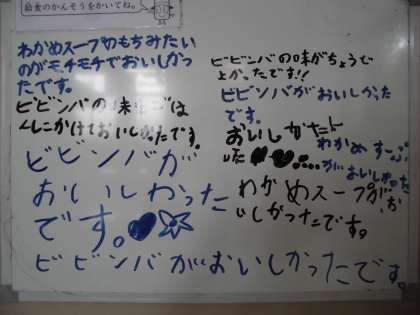 給食のかんそうをかいてね。
わかめスープのもちみたい
のがモチモチでおいしかっ
たです。
ビビンバの味
かけておいしかったです。
ビビンバが
おいしかった
です。
ビビンバがおいしかったです。
ビビンバの味がちょうど
よかったです!!
ビビンバがおいしかった
です。
おいしかた
した
わかめすーぷ
がおいしかった
わかめスープがお
いしかったです。